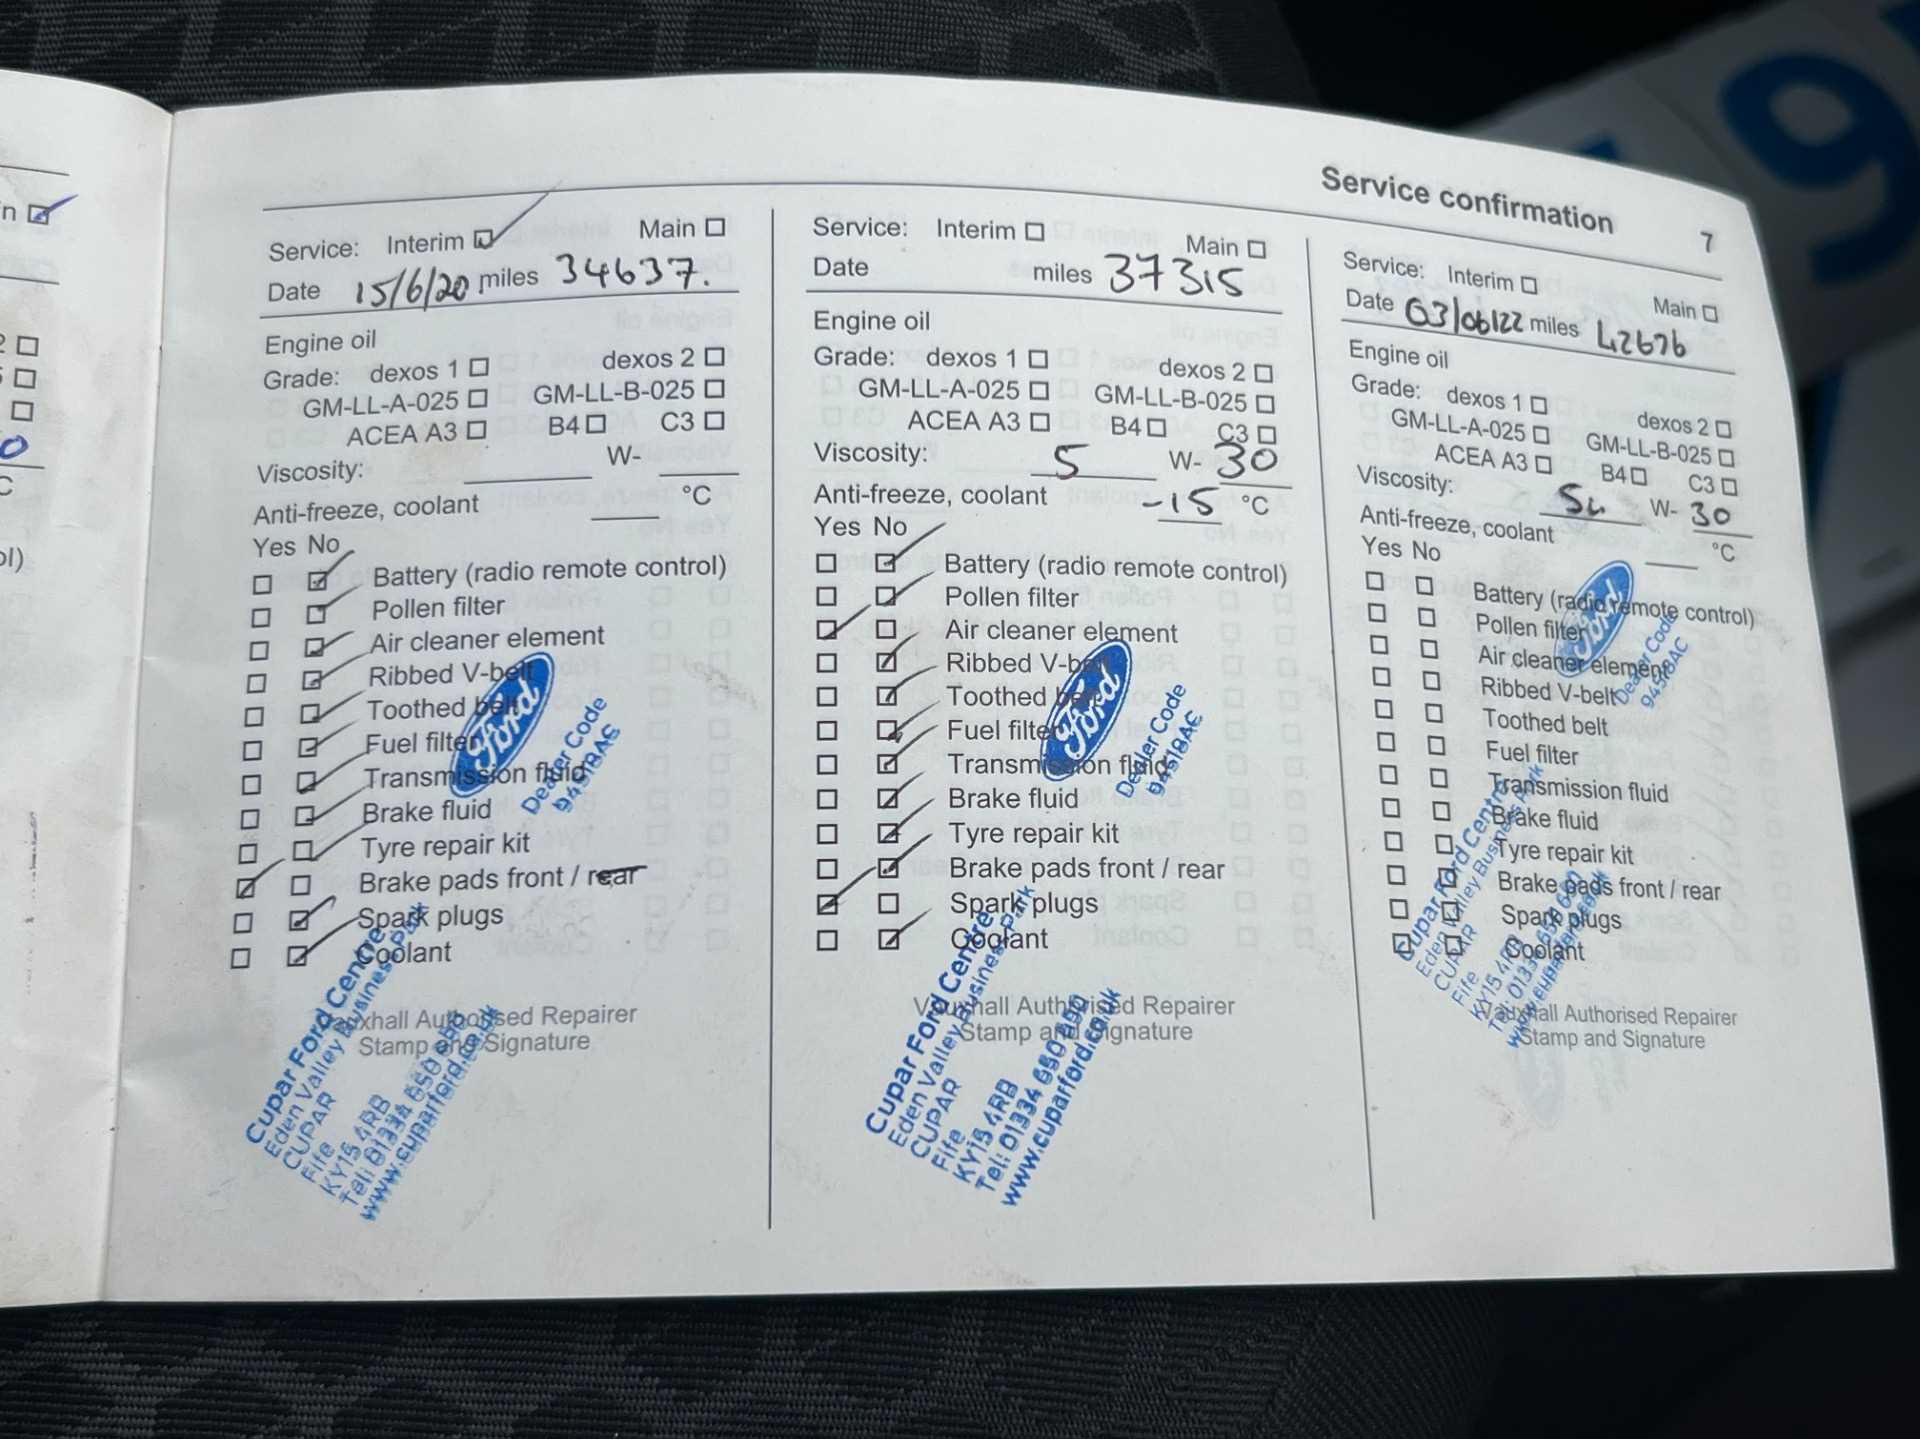 Service confirmation
7
n
Service: Interim Main
Date 15/6/20 miles 34637.
Engine oil
Grade: dexos 1 dexos 2
GM-LL-A-025 GM-LL-B-025
ACEA A3 B4 C3
Viscosity: W-
Anti-freeze, coolant °C
Yes No
Battery (radio remote control)
Pollen filter
Air cleaner element
Ribbed V-belt
Toothed belt
Fuel filter
Transmission fluid
Brake fluid
Tyre repair kit
Brake pads front / rear
Spark plugs
Coolant
Ford
Dealer Code
94518AC
Vauxhall Authorised Repairer
Stamp and Signature
Cupar Ford Centre
Eden Valley Business Park
CUPAR
Fife
KY15 4RB
Tel: 01334 650 690
www.cuparford.co.uk
Service: Interim Main
Date miles 37315
Engine oil
Grade: dexos 1 dexos 2
GM-LL-A-025 GM-LL-B-025
ACEA A3 B4 C3
Viscosity: 5 W- 30
Anti-freeze, coolant -15 °C
Yes No
Battery (radio remote control)
Pollen filter
Air cleaner element
Ribbed V-belt
Toothed belt
Fuel filter
Transmission fluid
Brake fluid
Tyre repair kit
Brake pads front / rear
Spark plugs
Coolant
Ford
Dealer Code
94518AC
Vauxhall Authorised Repairer
Stamp and Signature
Cupar Ford Centre
Eden Valley Business Park
CUPAR
Fife
KY15 4RB
Tel: 01334 650 690
www.cuparford.co.uk
Service: Interim Main
Date 03/06/22 miles 42676
Engine oil
Grade: dexos 1 dexos 2
GM-LL-A-025 GM-LL-B-025
ACEA A3 B4 C3
Viscosity: W- 30
Anti-freeze, coolant °C
Yes No
Battery (radio remote control)
Pollen filter
Air cleaner element
Ribbed V-belt
Toothed belt
Fuel filter
Transmission fluid
Brake fluid
Tyre repair kit
Brake pads front / rear
Spark plugs
Coolant
Ford
Dealer Code
94518AC
Cupar Ford Centre
Eden Valley Business Park
CUPAR
Fife
KY15 4RB
Tel: 01334 650 690
www.cuparford.co.uk
Vauxhall Authorised Repairer
Stamp and Signature
9